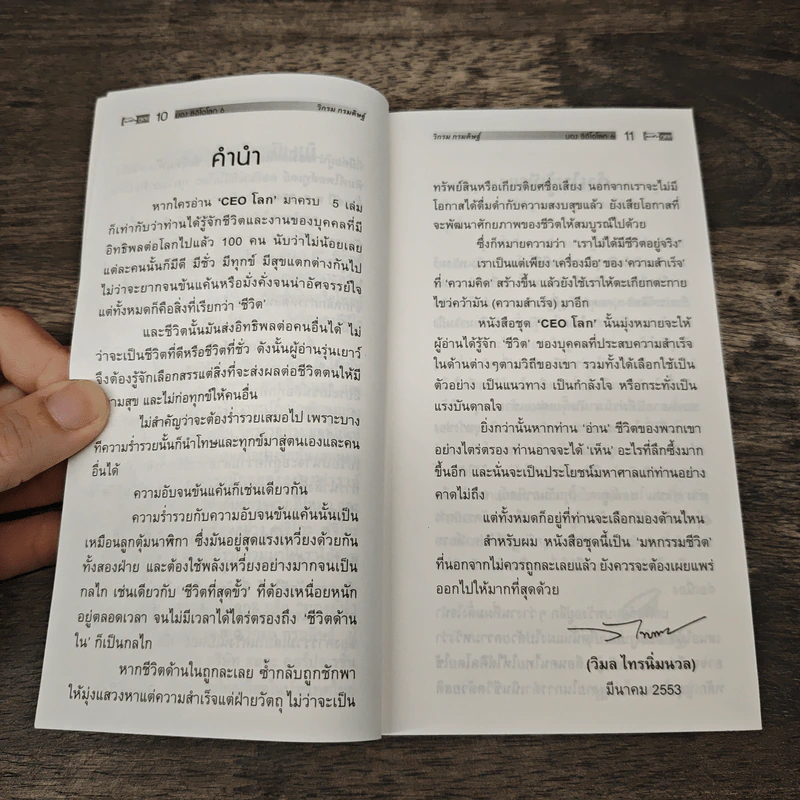 10 มอง ซีอีโอโลก 6 วิกรม กรมดิษฐ์
คำนำ
หากใครอ่าน ‘CEO โลก’ มาครบ 5 เล่ม
ก็เท่ากับว่าท่านได้รู้จักชีวิตและงานของบุคคลที่มี
อิทธิพลต่อโลกไปแล้ว 100 คน นับว่าไม่น้อยเลย
แต่ละคนนั้นก็มีดี มีชั่ว มีทุกข์ มีสุขแตกต่างกันไป
ไม่ว่าจะยากจนข้นแค้นหรือมั่งคั่งจนน่าอัศจรรย์ใจ
แต่ทั้งหมดก็คือสิ่งที่เรียกว่า ‘ชีวิต’
และชีวิตนั้นมันส่งอิทธิพลต่อคนอื่นได้ ไม่
ว่าจะเป็นชีวิตที่ดีหรือชีวิตที่ชั่ว ดังนั้นผู้อ่านรุ่นเยาว์
จึงต้องรู้จักเลือกสรรแต่สิ่งที่จะส่งผลต่อชีวิตตนให้มี
ามสุข และไม่ก่อทุกข์ให้คนอื่น
ไม่สำคัญว่าจะต้องร่ำรวยเสมอไป เพราะบาง
ทีความร่ำรวยนั้นก็นำโทษและทุกข์มาสู่ตนเองและคน
อื่นได้
ความอับจนข้นแค้นก็เช่นเดียวกัน
ความร่ำรวยกับความอับจนข้นแค้นนั้นเป็น
เหมือนลูกตุ้มนาฬิกา ซึ่งมันอยู่สุดแรงเหวี่ยงด้วยกัน
ทั้งสองฝ่าย และต้องใช้พลังเหวี่ยงอย่างมากจนเป็น
กลไก เช่นเดียวกับ ‘ชีวิตที่สุดขั้ว’ ที่ต้องเหนื่อยหนัก
อยู่ตลอดเวลา จนไม่มีเวลาได้ไตร่ตรองถึง ‘ชีวิตด้าน
ใน’ ก็เป็นกลไก
หากชีวิตด้านในถูกละเลย ซ้ำกลับถูกชักพา
ให้มุ่งแสวงหาแต่ความสำเร็จแต่ฝ่ายวัตถุ ไม่ว่าจะเป็น
วิกรม กรมดิษฐ์ มอง ซีอีโอโลก 6 11
ทรัพย์สินหรือเกียรติยศชื่อเสียง นอกจากเราจะไม่มี
โอกาสได้ดื่มด่ำกับความสงบสุขแล้ว ยังเสียโอกาสที่
จะพัฒนาศักยภาพของชีวิตให้สมบูรณ์ไปด้วย
ซึ่งก็หมายความว่า “เราไม่ได้มีชีวิตอยู่จริง”
เราเป็นแต่เพียง ‘เครื่องมือ’ ของ ‘ความสำเร็จ’
ที่ ‘ความคิด’ สร้างขึ้น แล้วยังใช้เราให้ตะเกียกตะกาย
ไขว่คว้ามัน (ความสำเร็จ) มาอีก
หนังสือชุด ‘CEO โลก’ นั้นมุ่งหมายจะให้
ผู้อ่านได้รู้จัก ‘ชีวิต’ ของบุคคลที่ประสบความสำเร็จ
ในด้านต่างๆตามวิถีของเขา รวมทั้งได้เลือกใช้เป็น
ตัวอย่าง เป็นแนวทาง เป็นกำลังใจ หรือกระทั่งเป็น
แรงบันดาลใจ
ยิ่งกว่านั้นหากท่าน ‘อ่าน’ ชีวิตของพวกเขา
อย่างไตร่ตรอง ท่านอาจจะได้ ‘เห็น’ อะไรที่ลึกซึ้งมาก
ขึ้นอีก และนั่นจะเป็นประโยชน์มหาศาลแก่ท่านอย่าง
คาดไม่ถึง
แต่ทั้งหมดก็อยู่ที่ท่านจะเลือกมองด้านไหน
สำหรับผม หนังสือชุดนี้เป็น ‘มหกรรมชีวิต’
ที่นอกจากไม่ควรถูกละเลยแล้ว ยังควรจะต้องเผยแพร่
ออกไปให้มากที่สุดด้วย
(วิมล ไทรนิ่มนวล)
มีนาคม 2553